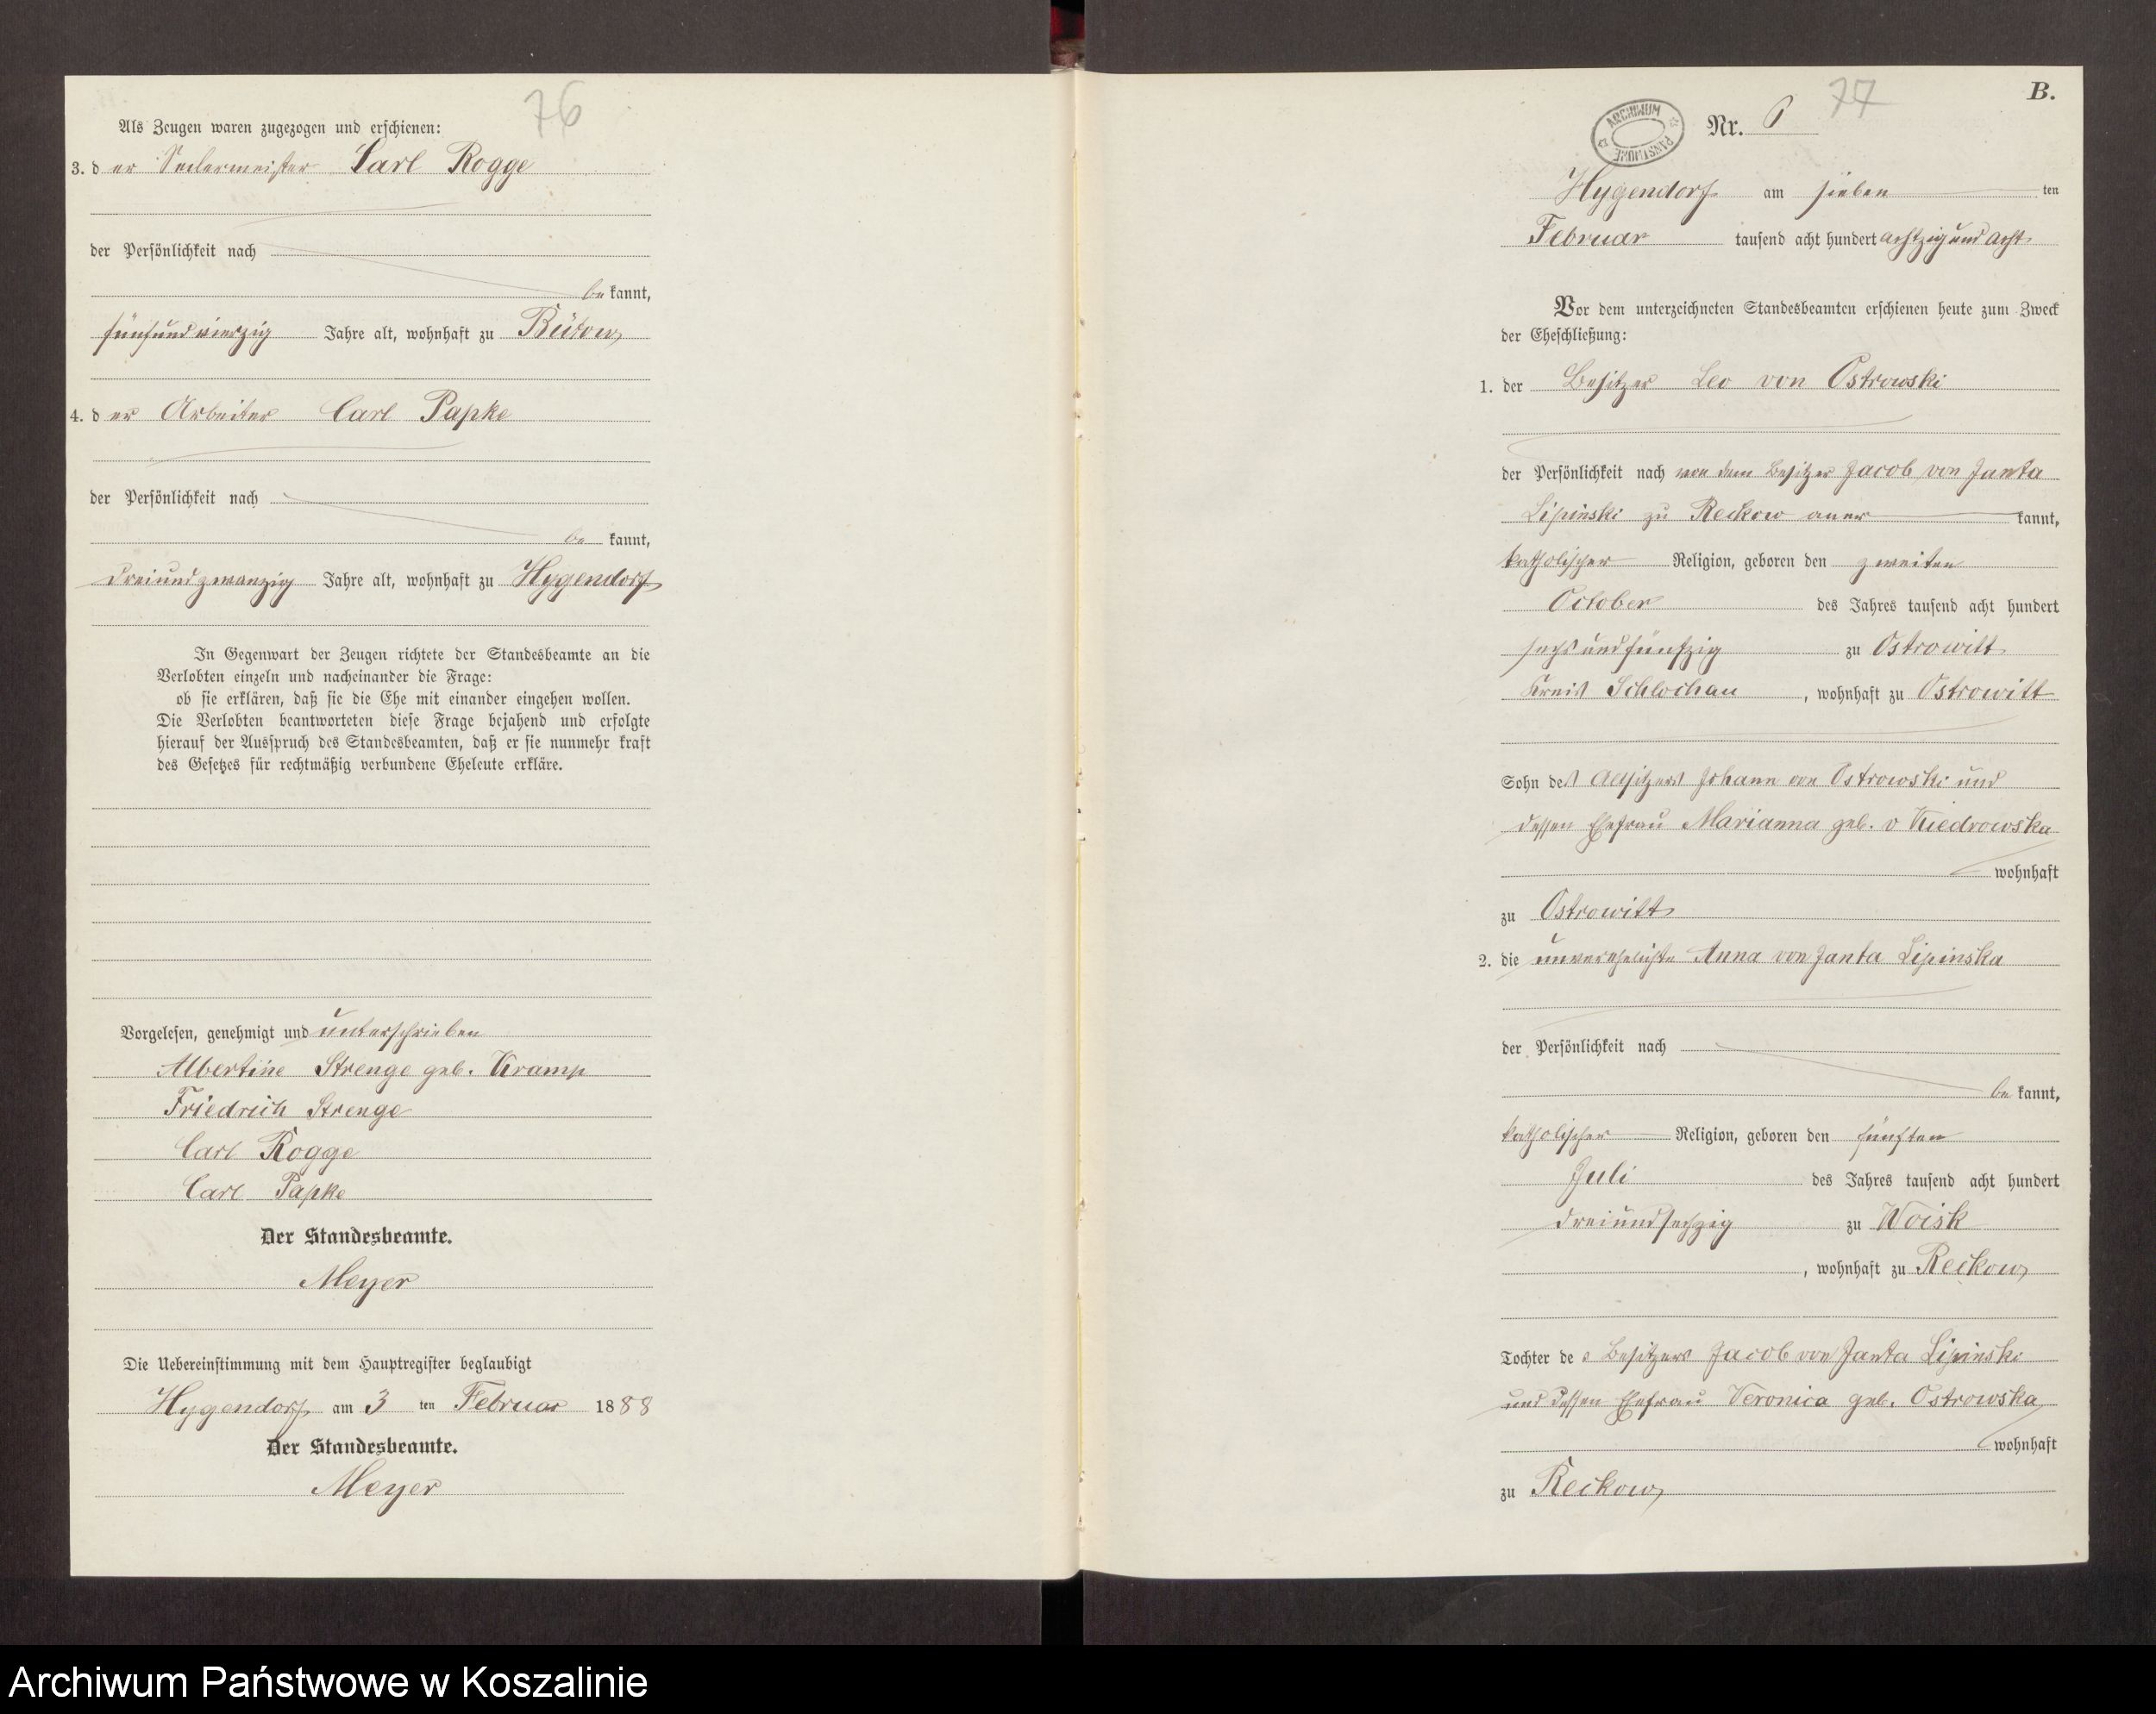 76
Als Zeugen waren zugezogen und erschienen:
3. d er Seilermeister Carl Rogge
der Persönlichkeit nach
be kannt,
fünfundvierzig Jahre alt, wohnhaft zu Bütow
4. d er Arbeiter Carl Papke
der Persönlichkeit nach
be kannt,
dreiundzwanzig Jahre alt, wohnhaft zu Hygendorf
In Gegenwart der Zeugen richtete der Standesbeamte an die
Verlobten einzeln und nacheinander die Frage:
ob sie erklären, daß sie die Ehe mit einander eingehen wollen.
Die Verlobten beantworteten diese Frage bejahend und erfolgte
hierauf der Ausspruch des Standesbeamten, daß er sie nunmehr kraft
des Gesetzes für rechtmäßig verbundene Eheleute erkläre.
Vorgelesen, genehmigt und unterschrieben
Albertine Strenge geb. Kramp
Friedrich Strenge
Carl Rogge
Carl Papke
Der Standesbeamte.
Meyer
Die Uebereinstimmung mit dem Hauptregister beglaubigt
Hygendorf am 3 ten Februar 1888
Der Standesbeamte.
Meyer
77
B.
ARCHIWUM PAŃSTWOWE
Nr. 6
Hygendorf am sieben ten
Februar tausend acht hundert achtzig und acht
Vor dem unterzeichneten Standesbeamten erschienen heute zum Zweck
der Eheschließung:
1. der Besitzer Leo von Ostrowski
der Persönlichkeit nach von dem Besitzer Jacob von Janta
Lipinski zu Reckow aner kannt,
katholischer Religion, geboren den zweiten
October des Jahres tausend acht hundert
sechs und fünfzig zu Ostrowitt
Kreis Schlochau, wohnhaft zu Ostrowitt
Sohn des Altsitzers Johann von Ostrowski und
dessen Ehefrau Marianna geb. v Kiedrowska
wohnhaft
zu Ostrowitt
2. die unverehelichte Anna von Janta Lipinska
der Persönlichkeit nach
be kannt,
katholischer Religion, geboren den fünften
Juli des Jahres tausend acht hundert
dreiundsechzig zu Woisk
, wohnhaft zu Reckow
Tochter des Besitzers Jacob von Janta Lipinski
und dessen Ehefrau Veronica geb. Ostrowska
wohnhaft
zu Reckow
Archiwum Państwowe w Koszalinie